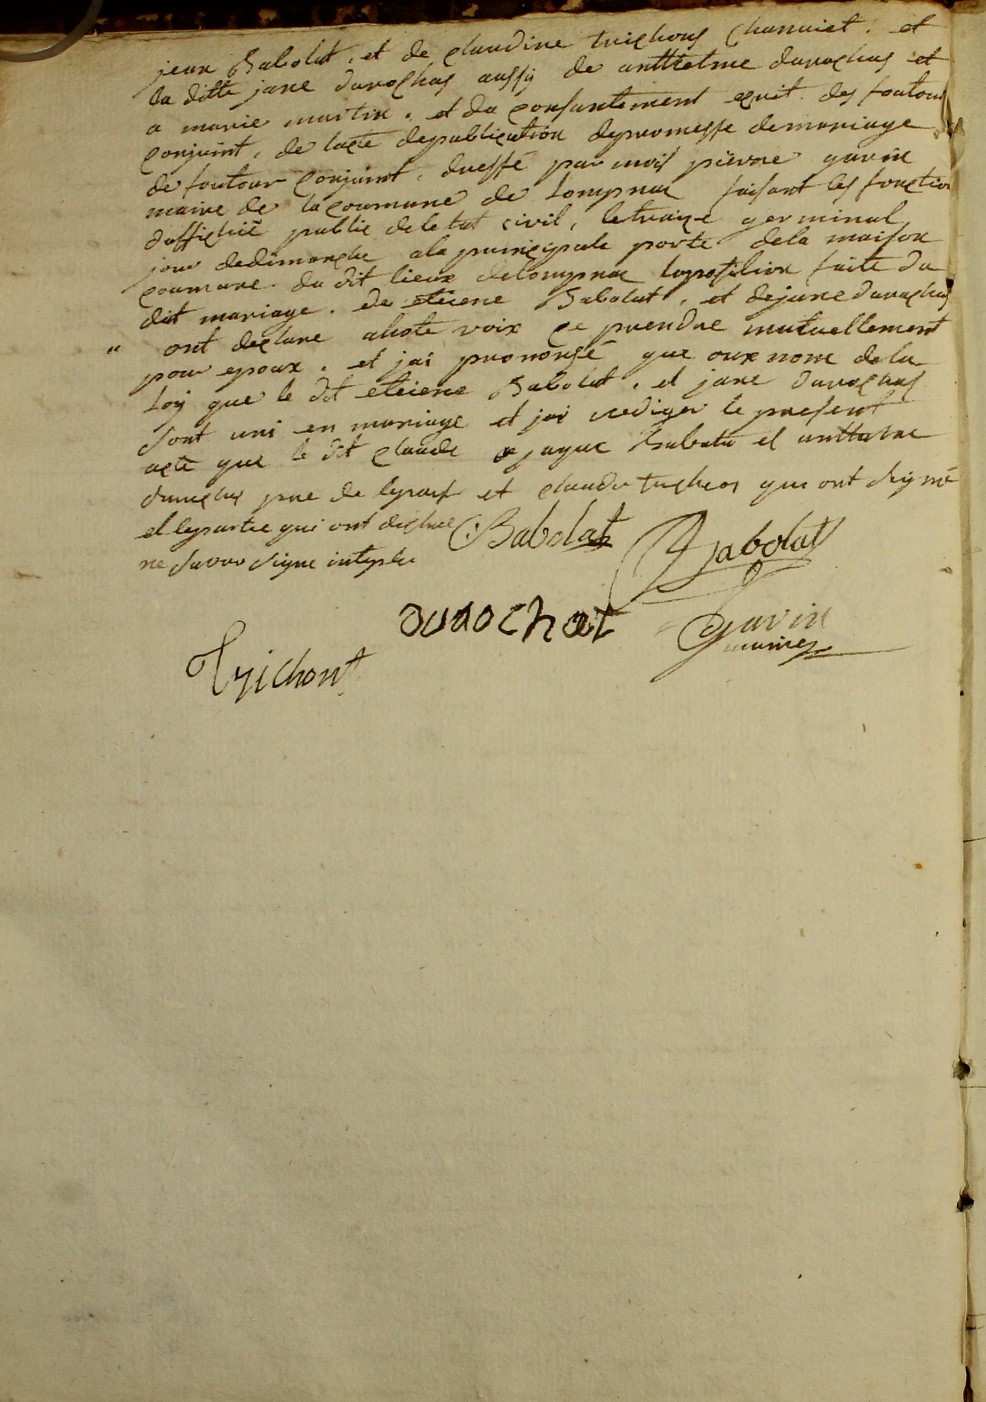 jean Babolat . et de claudine trichons charvict . et
la ditte jane durochas aussÿ de antthelme durochas et
a marie martin . et du consantement ecrit des foutour
conjoint . de lacte depublication depromesse demariage
de foutour conjoint . dressé par mois pierre guvin
maire de la coumune de Lompnas faisant les fonction
dofficiié public deletat civil , letraize germinal
jour dedimanche ala principale porte dela maison
coumune . du dit lieux delompnas loposilion faite du
dit mariage . de eteiene Babolat . et dejane durochas
" ont declare ahote voix ce prendre mutuellement
pour epoux . et jai prononsé que oux nom dela
Loÿ que le dit eteiene Babolat . et jane durochas
sont uni en mariage et jai rediger le present
acte que le dit claude jaque Babola et anttelme
durochas pere de lepoux et claude trichon qui ont signé
et lepartie qui ont declare
ne savoir signe
Babolat Babolat
durochat guvin
maire
Trichont